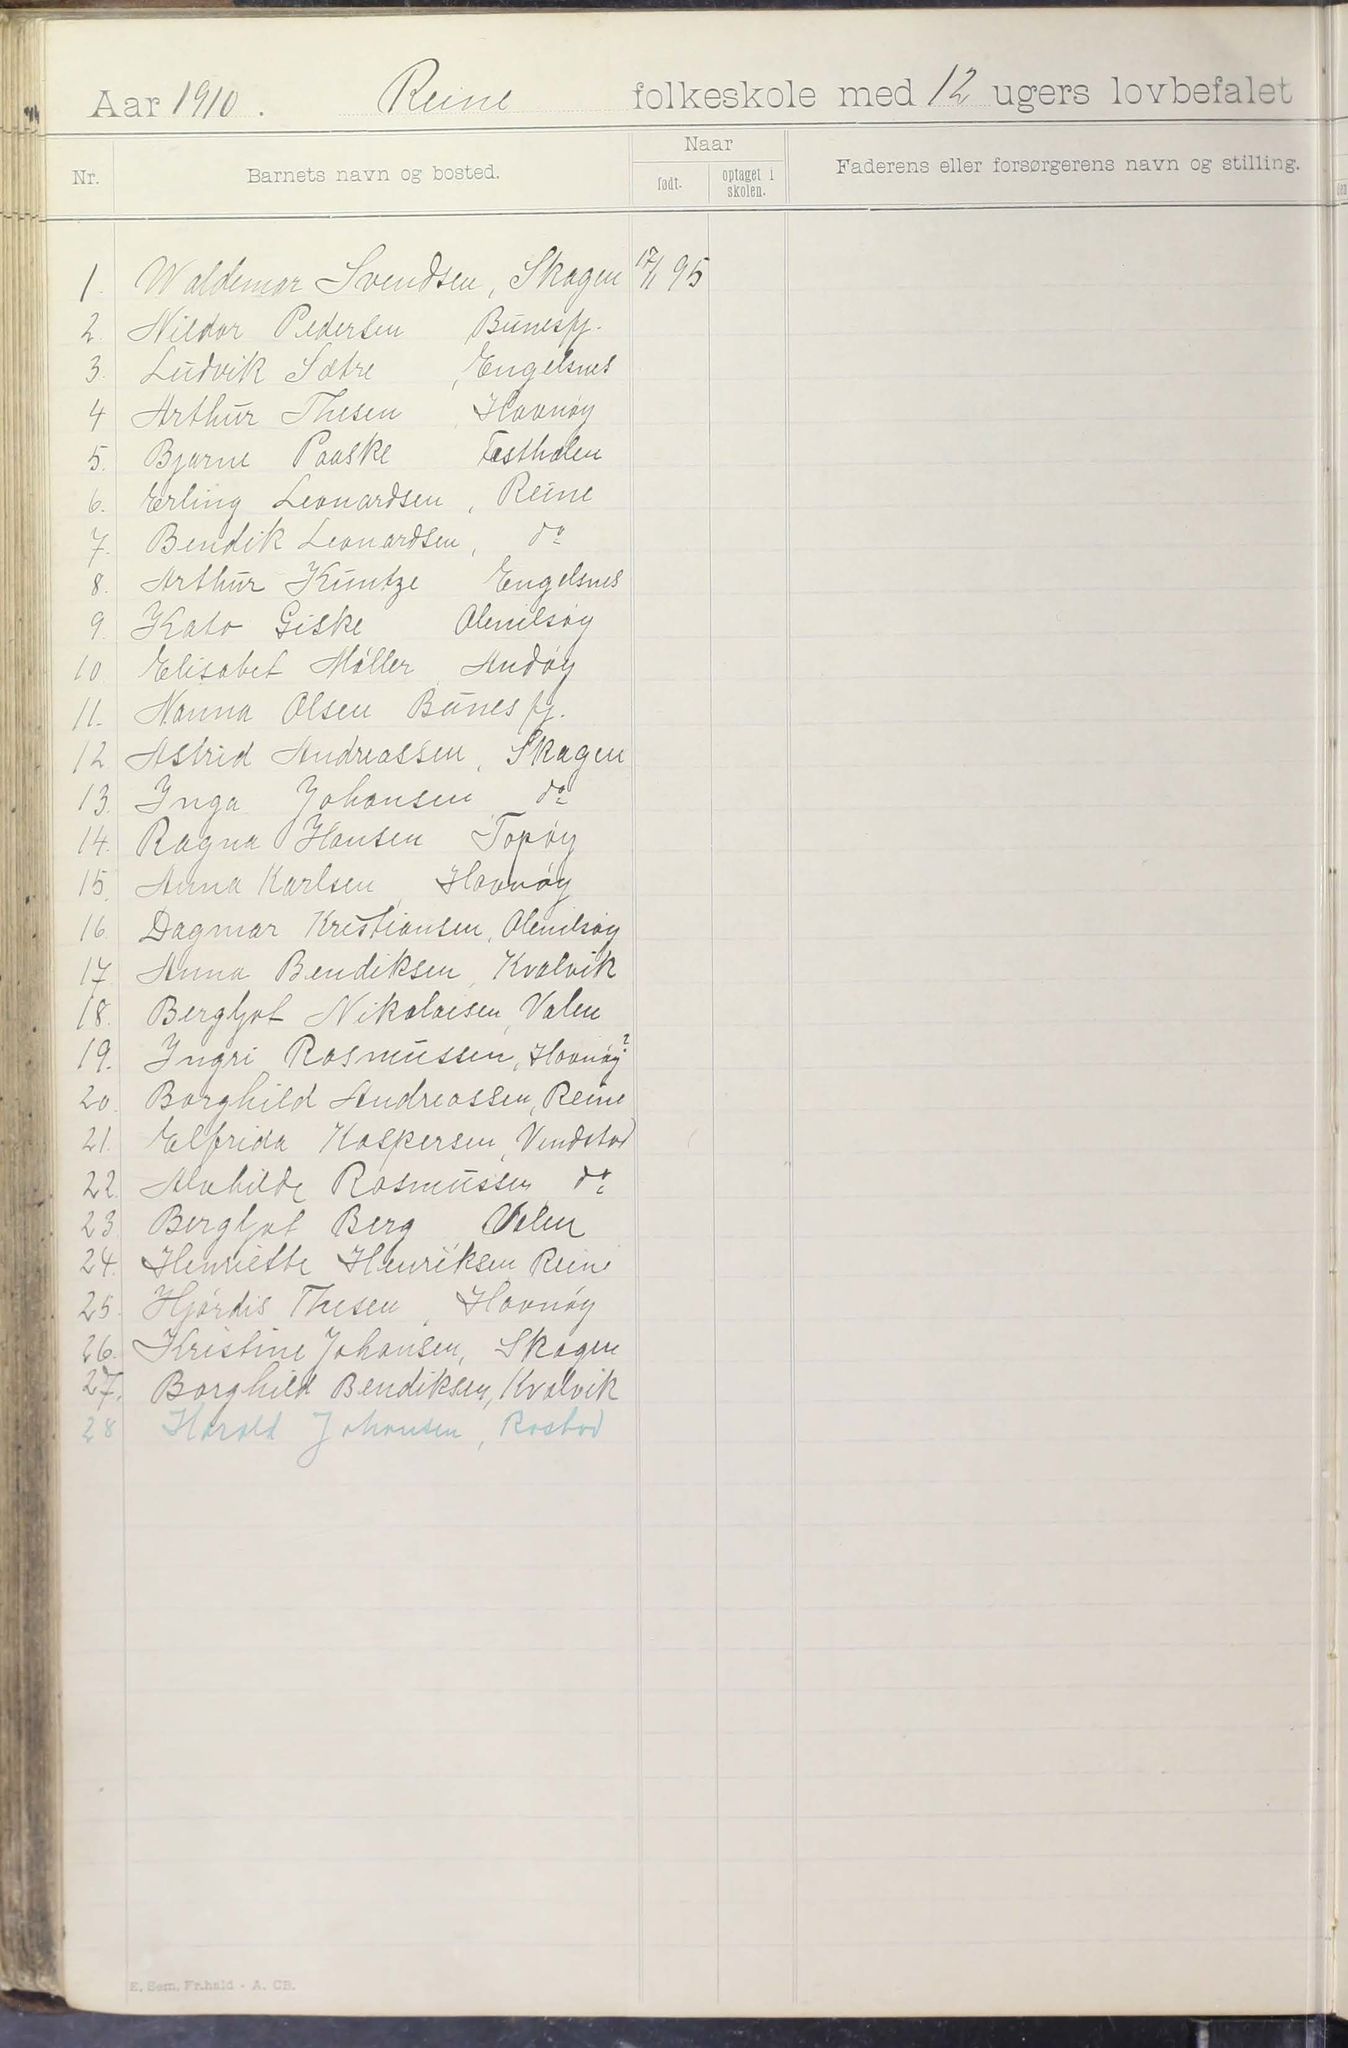 Aar 1910. Reine folkeskole med 12 ugers lovbefalet
Nr. Barnets navn og bosted. Naar Faderens eller forsørgerens navn og stilling.
født. optaget i skolen.
1. Waldemar Svendsen, Skagen 17/1 95
2. Nildor Pedersen Bunesfj.
3. Ludvik Sætre, Engelsnes
4 Arthur Thesen, Havnøy
5. Bjarne Paaske Festhælen
6. Erling Leonardsen, Reine
7. Bendik Leonardsen, do
8. Arthur Kuntze Engelsnes
9. Kato Giske Olenilsøy
10. Elisabet Møller, Andøy
11. Nanna Olsen Bunesfj.
12. Astrid Andreassen, Skagen
13. Inga Johansen do
14. Ragna Hansen Topøy
15. Anna Karlsen, Havnøy
16. Dagmar Kristiansen, Olenilsøy
17. Anna Bendiksen, Kvalvik
18. Bergljot Nikolaisen, Valen
19. Ingri Rasmussen, Havnøy?
20. Borghild Andreassen, Reine
21. Elfrida Kaspersen, Vindstad
22. Alvhilde Rasmussen do
23. Bergljot Berg Valen
24. Henriette Henriksen Reine
25. Hjørdis Thesen, Havnøy
26. Kristine Johansen, Skagen
27. Borghild Bendiksen, Kvalvik
28 Harald Johansen, Rostad
E. Sem, Fr.hald - A. CB.